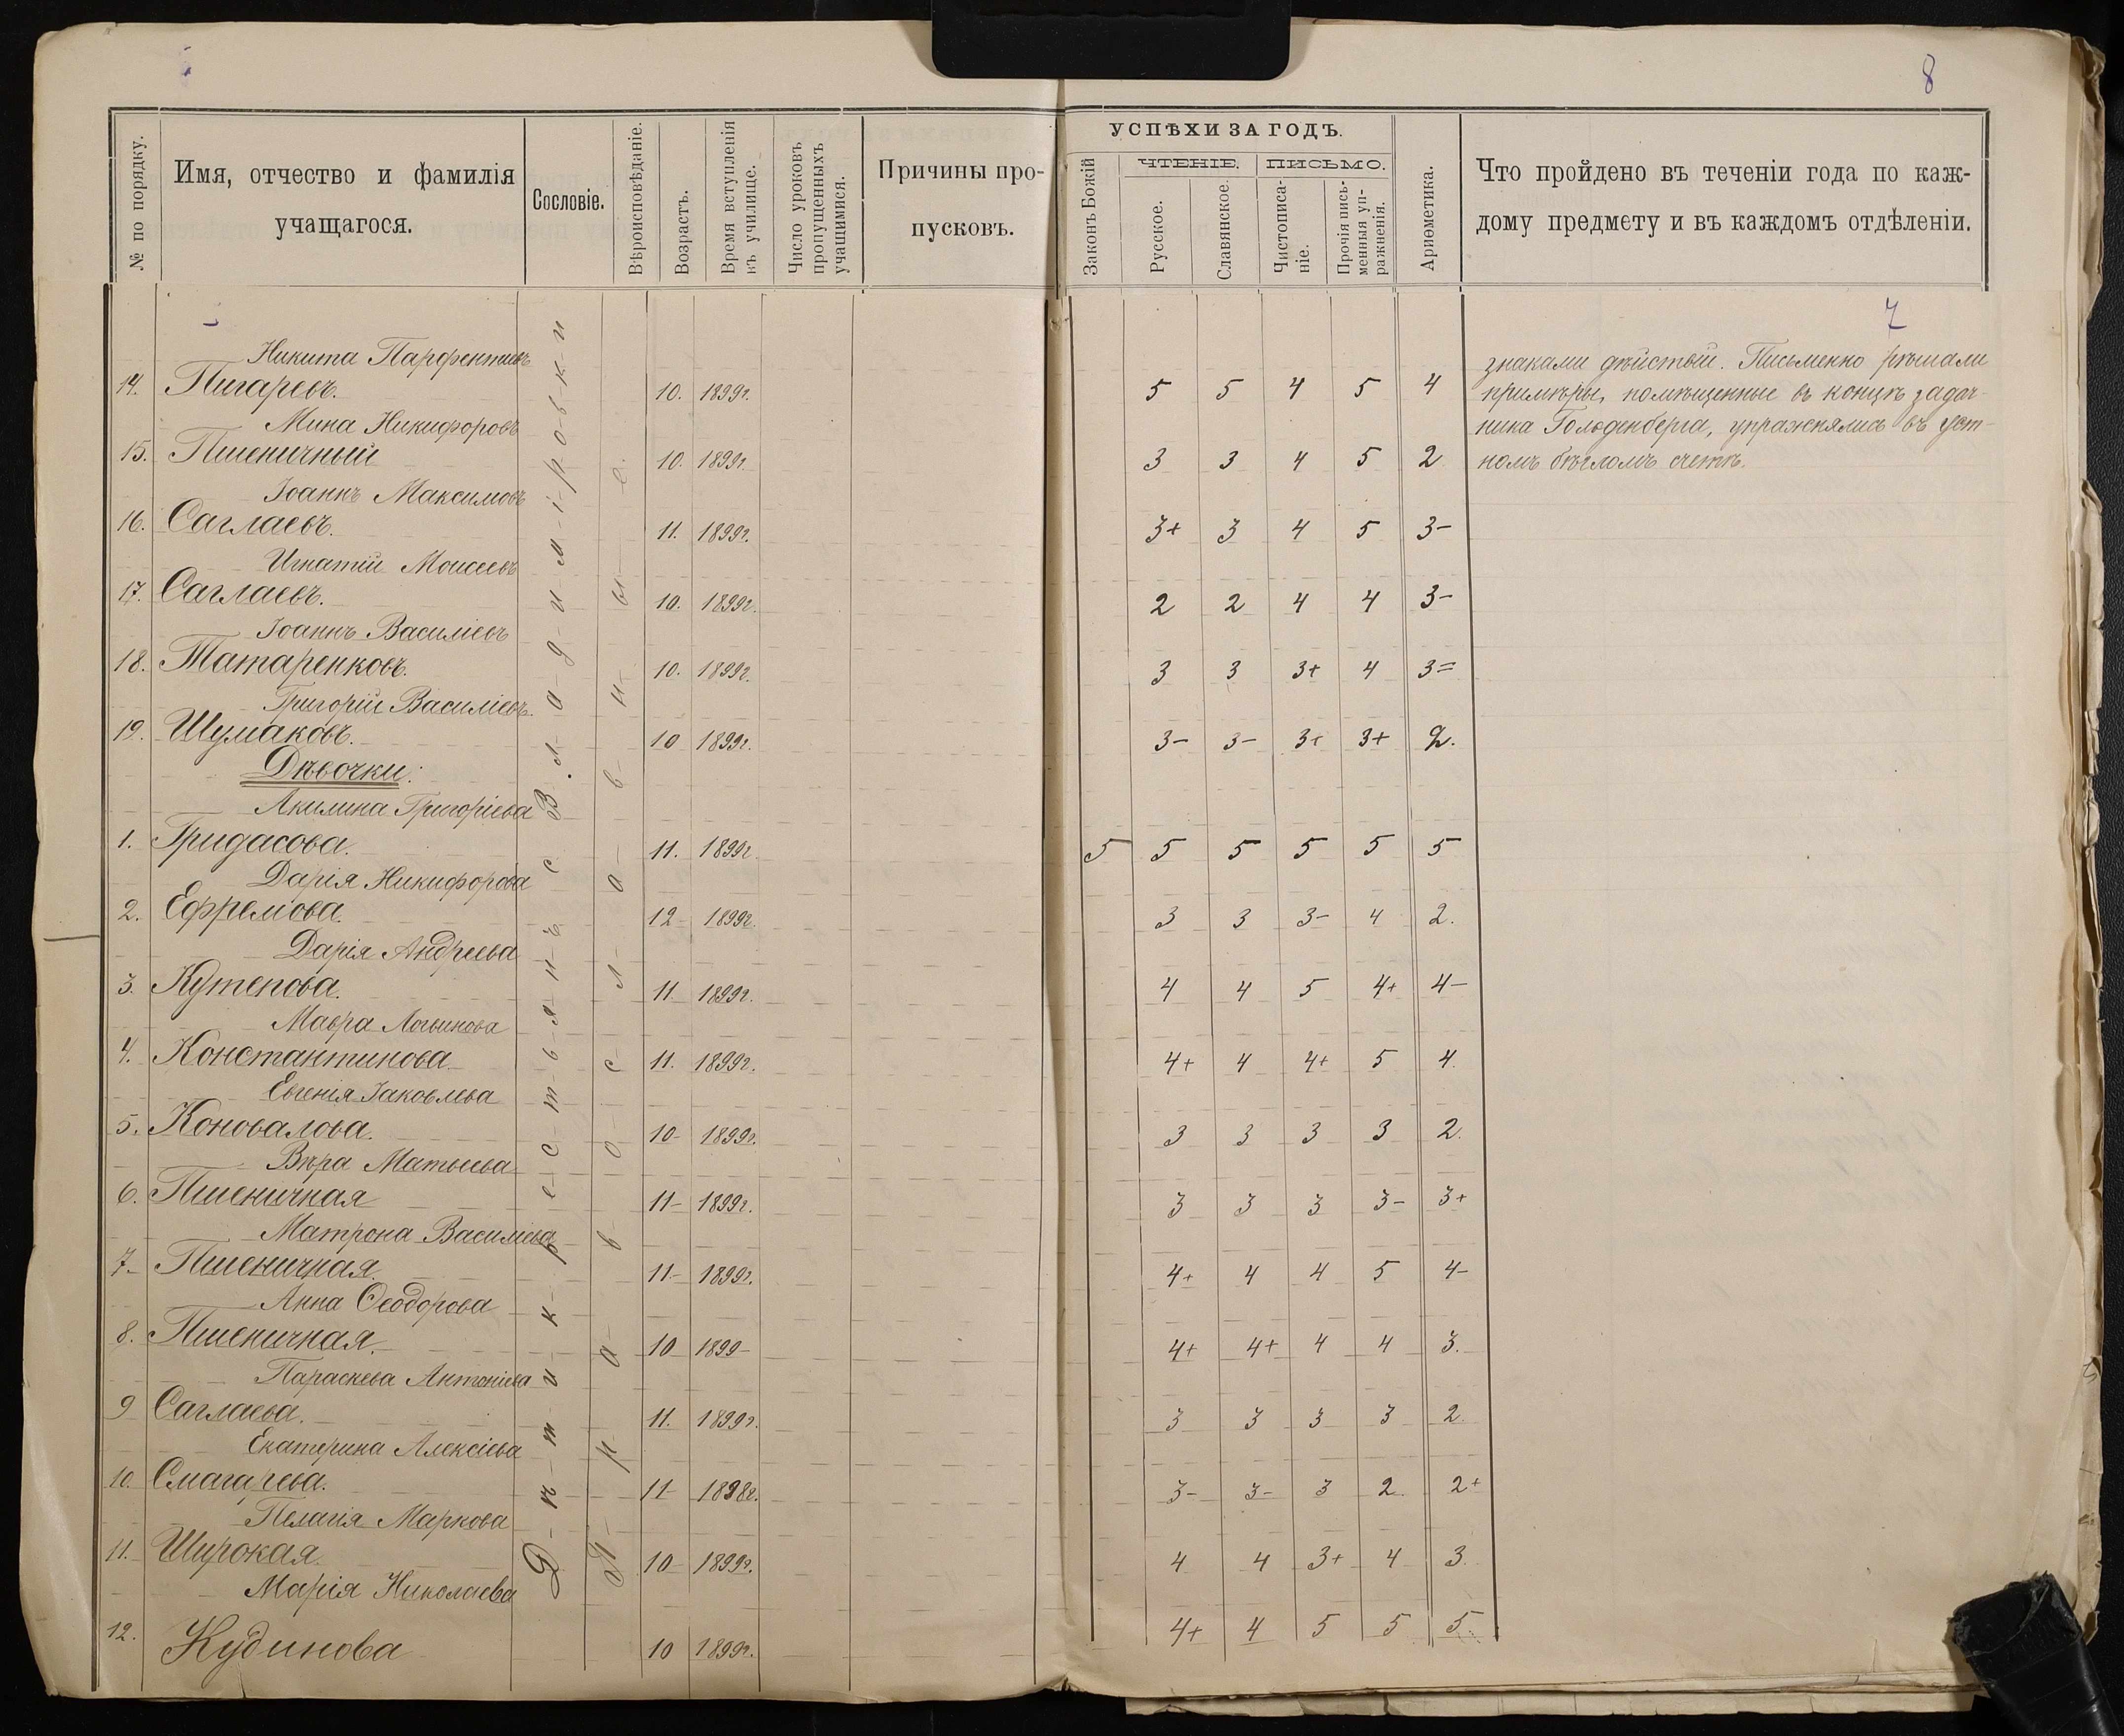 8
УСПѢХИ ЗА ГОДЪ.
№ по порядку.
Имя, отчество и фамилія
учащагося.
Сословіе.
Вѣроисповѣданіе.
Возрастъ.
Время вступленія
въ училище.
Число уроковъ
пропущенныхъ
учащимися.
Причины про-
пусковъ.
Законъ Божій
ЧТЕНІЕ.
Русское.
Славянское.
ПИСЬМО.
Чистописа-
ніе.
Прочія пись-
менныя уп-
ражненія.
Ариѳметика.
Что пройдено въ теченіи года по каж-
дому предмету и въ каждомъ отдѣленіи.
7
Дѣти крестьянъ с. Владиміровки
Православные
Никита Парфентіевъ
14. Пигаревъ. 10. 1899г. 5 5 4 5 4
Мина Никифоровъ
15. Пшеничный 10. 1899г. 3 3 4 5 2
Іоаннъ Максимовъ
16. Саглаевъ. 11. 1899г. 3+ 3 4 5 3-
Игнатій Моисеевъ
17. Саглаевъ. 10. 1899г. 2 2 4 4 3-
Іоаннъ Василіевъ
18. Татаренковъ. 10. 1899г. 3 3 3+ 4 3=
Григорій Василіевъ.
19. Шумаковъ. 10 1899г. 3- 3- 3+ 3+ 2.
Дѣвочки:
Акилина Григоріева
1. Гридасова. 11. 1899г. 5 5 5 5 5 5
Дарія Никифорова
2. Ефремова. 12 1899г. 3 3 3- 4 2.
Дарія Андреева
3. Кутепова. 11 1899г. 4 4 5 4+ 4-
Мавра Логвинова
4. Константинова 11. 1899г. 4+ 4 4+ 5 4
Евгенія Іаковлева
5. Коновалова. 10 1899г. 3 3 3 3 2.
Вѣра Матвеева
6. Пшеничная 11 1899г. 3 3 3 3- 3+
Матрона Василіева
7. Пшеничная. 11 1899г. 4+ 4 4 5 4-
Анна Ѳеодорова
8. Пшеничная. 10 1899 4+ 4+ 4 4 3.
Параскева Антоніева
9 Саглаева. 11. 1899г. 3 3 3 3 2
Екатерина Алексіева
10. Смагарева. 11 1898г. 3- 3- 3 2. 2+
Пелагія Маркова
11. Широкая. 10 1899г. 4 4 3+ 4 3.
Марія Николаева
12. Кудинова 10 1899г. 4+ 4 5 5 5.
знаками дѣйствій. Письменно рѣшали
примѣры, помѣщенные въ концѣ задач-
ника Гольденберга, упражнялись въ уст-
номъ бѣгломъ счетѣ.